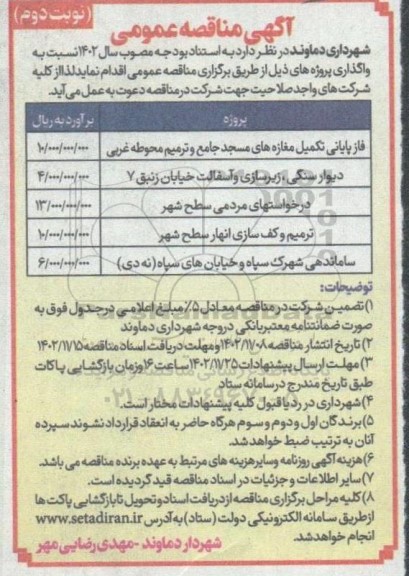 (نوبت دوم)
آگهی مناقصه عمومی
شهرداری دماوند در نظر دارد به استناد بودجه مصوب سال ۱۴۰۲ نسبت به
واگذاری پروژه های ذیل از طریق برگزاری مناقصه عمومی اقدام نماید لذا از کلیه
شرکت های واجد صلاحیت جهت شرکت در مناقصه دعوت به عمل می آید.
پروژه برآورد به ریال
فاز پایانی تکمیل مغازه های مسجد جامع و ترمیم محوطه غربی ۱۰/۰۰۰/۰۰۰/۰۰۰
دیوار سنگی، زیرسازی و آسفالت خیابان زنبق ۷ ۴/۰۰۰/۰۰۰/۰۰۰
درخواستهای مردمی سطح شهر ۱۳/۰۰۰/۰۰۰/۰۰۰
ترمیم و کف سازی انهار سطح شهر ۱۰/۰۰۰/۰۰۰/۰۰۰
ساماندهی شهرک سپاه و خیابان های سپاه (نه دی) ۶/۰۰۰/۰۰۰/۰۰۰
توضیحات:
۱) تضمین شرکت در مناقصه معادل ۵٪ مبلغ اعلامی در جدول فوق به
صورت ضمانتنامه معتبر بانکی در وجه شهرداری دماوند
۲) تاریخ انتشار مناقصه ۱۴۰۲/۱۱/۰۸ و مهلت دریافت اسناد مناقصه ۱۴۰۲/۱۱/۱۵
۳) مهلت ارسال پیشنهادات ۱۴۰۲/۱۱/۲۵ ساعت ۱۶ و زمان بازگشایی پاکات
طبق تاریخ مندرج در سامانه ستاد
۴) شهرداری در رد یا قبول کلیه پیشنهادات مختار است.
۵) برندگان اول و دوم و سوم هرگاه حاضر به انعقاد قرارداد نشوند سپرده
آنان به ترتیب ضبط خواهد شد.
۶) هزینه آگهی روزنامه و سایر هزینه های مرتبط به عهده برنده مناقصه می باشد.
۷) سایر اطلاعات و جزئیات در اسناد مناقصه قید گردیده است.
۸) کلیه مراحل برگزاری مناقصه از دریافت اسناد و تحویل تا بازگشایی پاکت ها
از طریق سامانه الکترونیکی دولت (ستاد) به آدرس www.setadiran.ir
انجام خواهد شد.
شهردار دماوند - مهدی رضایی مهر